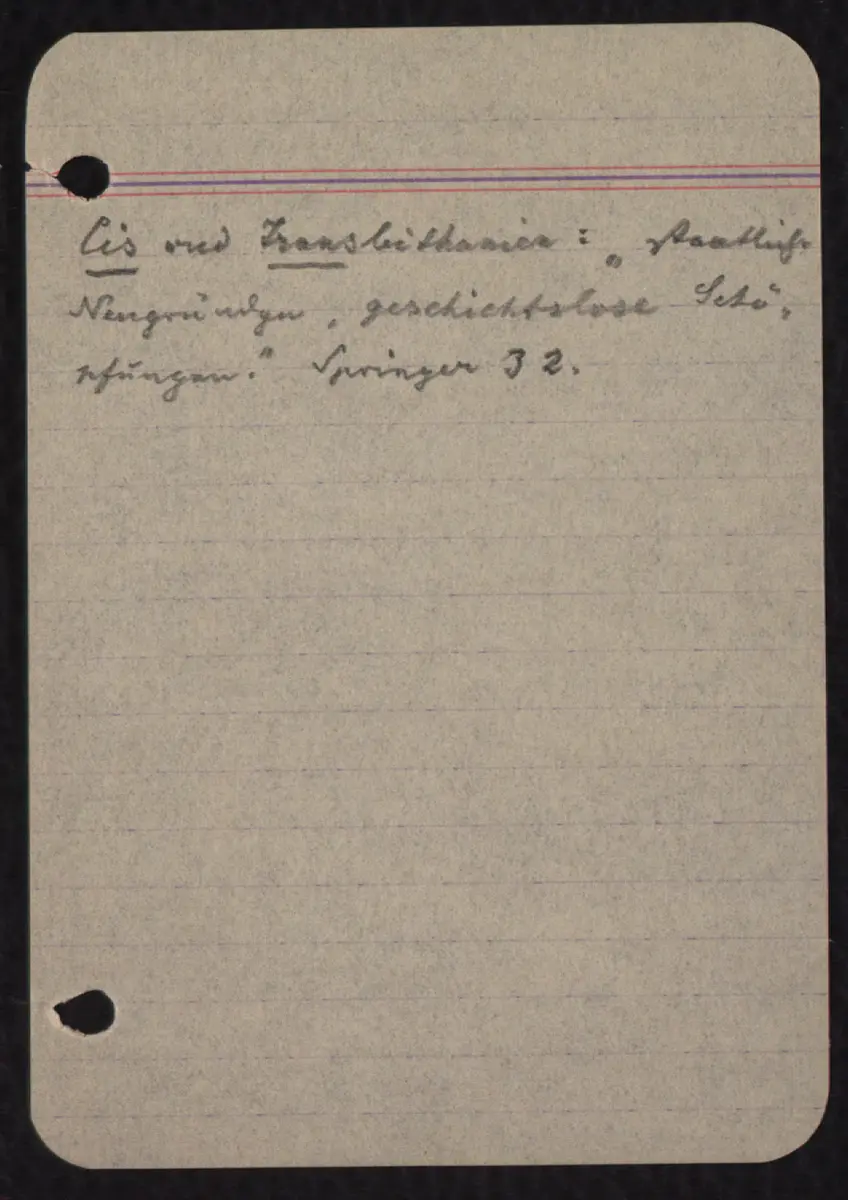 Cis und Transleithanien : „staatliche
Neugründgn, geschichtslose Schö-
pfungen." Springer 32.